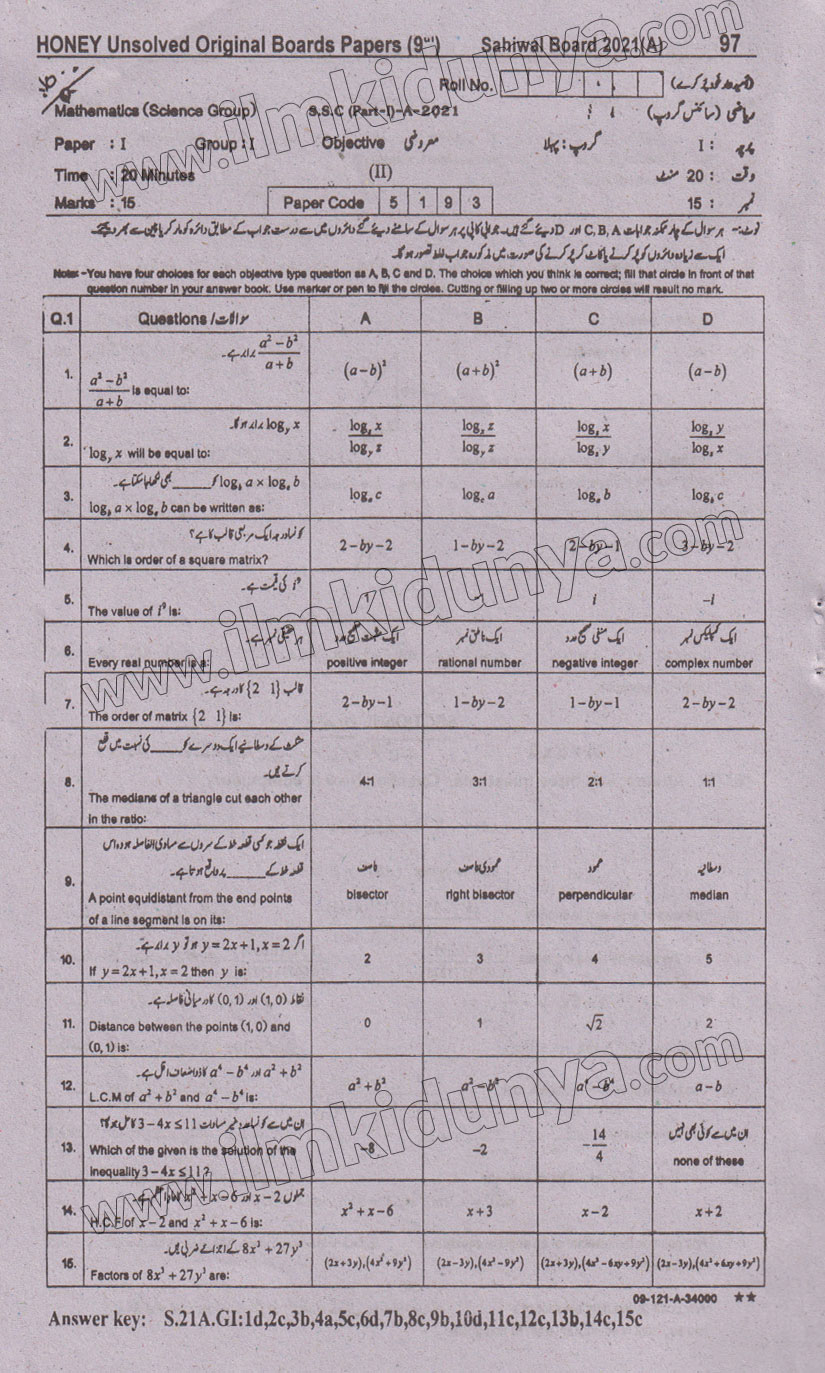 HONEY Unsolved Original Boards Papers (9th) Sahiwal Board 2021(A) 97
Roll No.
Mathematics (Science Group) S.S.C (Part-I)-A-2021 ریاضی (سائنس گروپ)
Paper : I Group : I Objective معروضی گروپ : پہلا پرچہ : I
Time : 20 Minutes (II) وقت : 20 منٹ
Marks : 15 Paper Code 5 1 9 3 نمبر : 15
نوٹ:- ہر سوال کے چار ممکنہ جوابات C, B, A اور D دیئے گئے ہیں۔ جوابی کاپی پر ہر سوال کے سامنے دیئے گئے دائروں میں سے درست جواب کے مطابق دائرہ کو مارکر یا پین سے بھر دیجئے۔
ایک سے زیادہ دائروں کو پُر کرنے یا کاٹ کر پُر کرنے کی صورت میں مذکورہ جواب غلط تصور ہو گا۔
Note:-You have four choices for each objective type question as A, B, C and D. The choice which you think is correct; fill that circle in front of that
question number in your answer book. Use marker or pen to fill the circles. Cutting or filling up two or more circles will result no mark.
Q.1 Questions / سوالات A B C D
(a² − b²)/(a + b) برابر ہے۔
1. (a² − b²)/(a + b) is equal to: (a − b)² (a + b)² (a + b) (a − b)
log_y x برابر ہو گا۔
2. log_y x will be equal to: log_z x / log_y z log_x z / log_y z log_z x / log_z y log_z y / log_z x
log_b a × log_c b کو ______ بھی لکھا جا سکتا ہے۔
3. log_b a × log_c b can be written as: log_a c log_c a log_a b log_b c
کونسا درجہ ایک مربعی قالب کا ہے؟
4. Which is order of a square matrix? 2−by−2 1−by−2 2−by−1 3−by−2
i⁹ کی قیمت ہے۔
5. The value of i⁹ is: 1 −1 i −i
ہر حقیقی نمبر ہے۔ ایک مثبت صحیح عدد ایک ناطق نمبر ایک منفی صحیح عدد ایک کمپلیکس نمبر
6. Every real number is a: positive integer rational number negative integer complex number
قالب {2 1} کا درجہ ہے۔
7. The order of matrix {2 1} is: 2−by−1 1−by−2 1−by−1 2−by−2
مثلث کے وسطانیے ایک دوسرے کو ______ کی نسبت میں قطع
کرتے ہیں۔
8. The medians of a triangle cut each other 4:1 3:1 2:1 1:1
in the ratio:
ایک نقطہ جو کسی قطعہ خط کے سروں سے مساوی الفاصلہ ہو وہ اس
قطعہ خط کے ______ پر واقع ہوتا ہے۔ ناصف عمودی ناصف عمود وسطانیہ
9. A point equidistant from the end points bisector right bisector perpendicular median
of a line segment is on its:
اگر y = 2x+1, x = 2 ہو تو y برابر ہے۔
10. If y = 2x+1, x = 2 then y is: 2 3 4 5
نقاط (1, 0) اور (0, 1) کا درمیانی فاصلہ ہے۔
11. Distance between the points (1, 0) and 0 1 √2 2
(0, 1) is:
a² + b² اور a⁴ − b⁴ کا ذواضعاف اقل ہے۔
12. L.C.M of a² + b² and a⁴ − b⁴ is: a² + b² a² − b² a⁴ − b⁴ a − b
ان میں سے کونسا عدد غیر مساوات 3 − 4x ≤ 11 کا حل ہو گا؟
13. Which of the given is the solution of the −8 −2 −14/4 ان میں سے کوئی بھی نہیں
inequality 3 − 4x ≤ 11? none of these
14. H.C.F of x − 2 and x² + x − 6 is: x² + x − 6 x + 3 x − 2 x + 2
8x³ + 27y³ کے اجزائے ضربی ہیں۔
15. Factors of 8x³ + 27y³ are: (2x+3y),(4x²+9y²) (2x−3y),(4x²−9y²) (2x+3y),(4x²−6xy+9y²) (2x−3y),(4x²+6xy+9y²)
09-121-A-34000 ★★
Answer key: S.21A.GI:1d,2c,3b,4a,5c,6d,7b,8c,9b,10d,11c,12c,13b,14c,15c
www.ilmkidunya.com
www.ilmkidunya.com
www.ilmkidunya.com